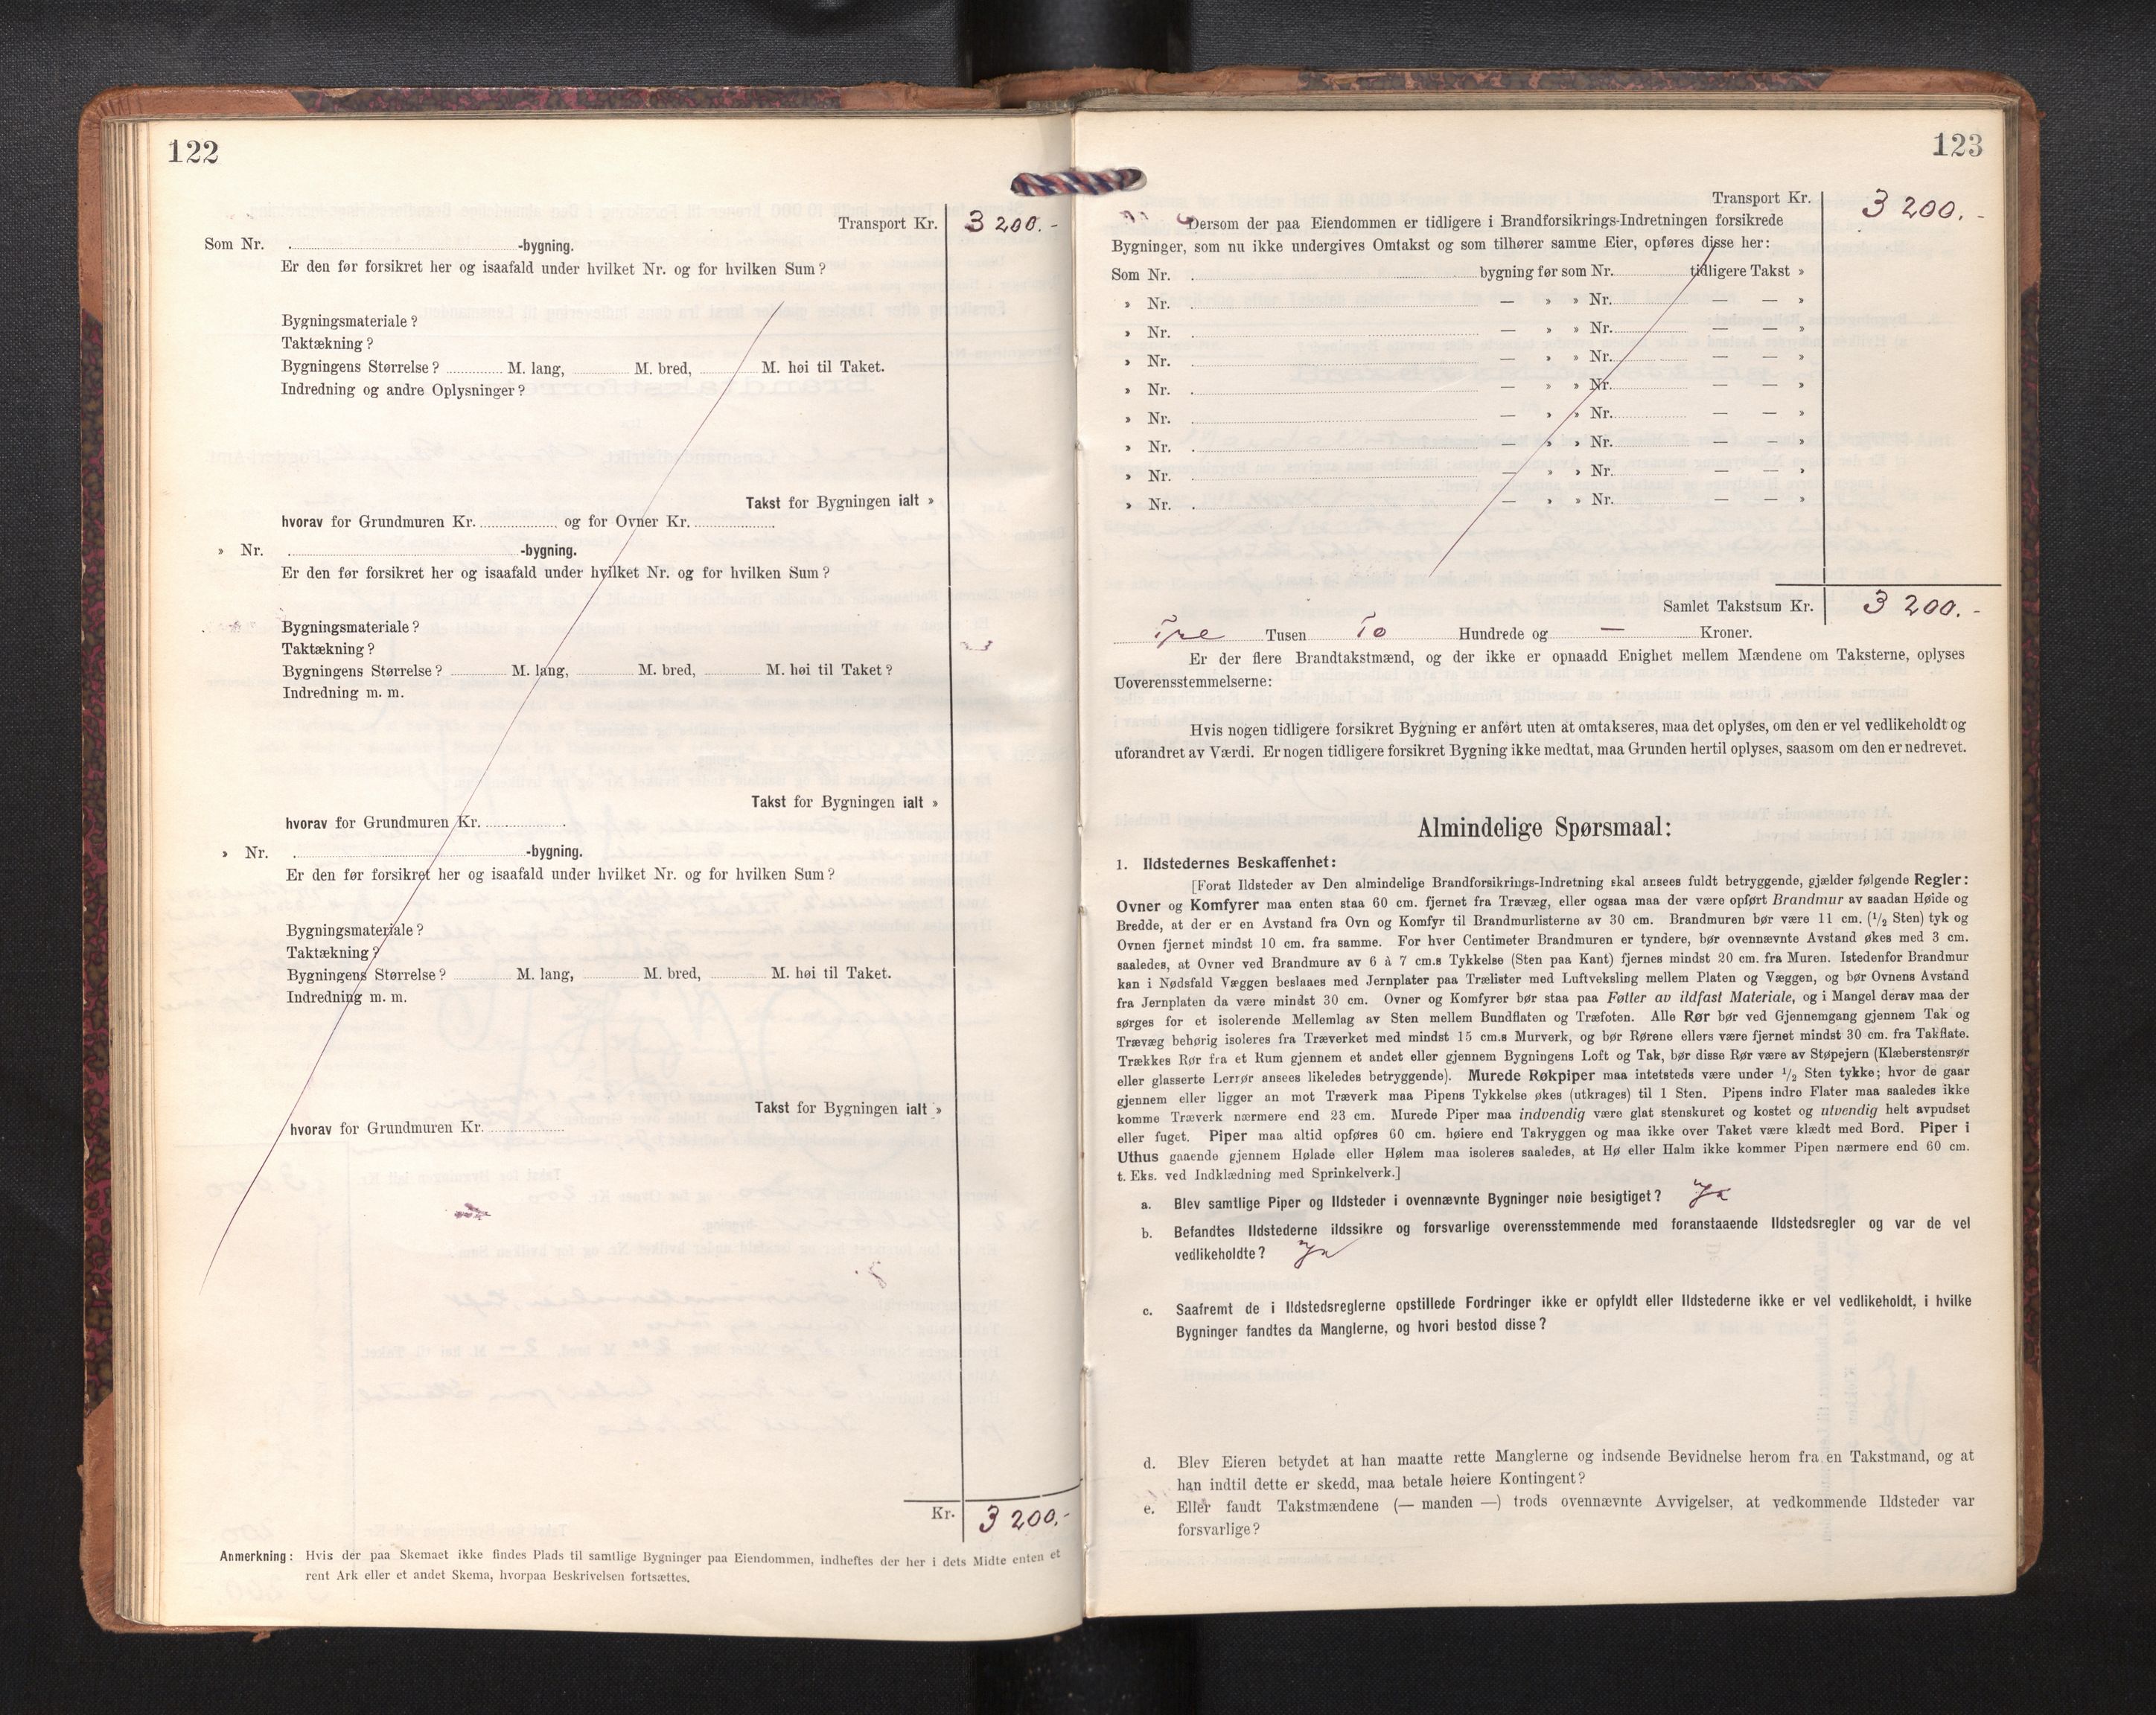 122
Transport Kr. 3 200.-
Som Nr. -bygning.
Er den før forsikret her og isaafald under hvilket Nr. og for hvilken Sum?
Bygningsmateriale?
Taktækning?
Bygningens Størrelse? M. lang, M. bred, M. høi til Taket.
Indredning og andre Oplysninger?
Takst for Bygningen ialt »
hvorav for Grundmuren Kr. og for Ovner Kr.
» Nr. -bygning.
Er den før forsikret her og isaafald under hvilket Nr. og for hvilken Sum?
Bygningsmateriale?
Taktækning?
Bygningens Størrelse? M. lang, M. bred, M. høi til Taket?
Indredning m. m.
Takst for Bygningen ialt »
hvorav for Grundmuren Kr.
» Nr. -bygning.
Er den før forsikret her og isaafald under hvilket Nr. og for hvilken Sum?
Bygningsmateriale?
Taktækning?
Bygningens Størrelse? M. lang, M. bred, M. høi til Taket.
Indredning m. m.
Takst for Bygningen ialt »
hvorav for Grundmuren Kr.
Kr. 3 200.-
Anmerkning: Hvis der paa Skemaet ikke findes Plads til samtlige Bygninger paa Eiendommen, indheftes der her i dets Midte enten et
rent Ark eller et andet Skema, hvorpaa Beskrivelsen fortsættes.
123
Transport Kr. 3 200.-
Dersom der paa Eiendommen er tidligere i Brandforsikrings-Indretningen forsikrede
Bygninger, som nu ikke undergives Omtakst og som tilhører samme Eier, opføres disse her:
Som Nr. bygning før som Nr. tidligere Takst »
» Nr. — » » Nr. — — »
» Nr. — » » Nr. — — »
» Nr. — » » Nr. — — »
» Nr. — » » Nr. — — »
» Nr. — » » Nr. — — »
» Nr. — » » Nr. — — »
» Nr. — » » Nr. — — »
» Nr. — » » Nr. — — »
Samlet Takstsum Kr. 3 200.-
Tre Tusen To Hundrede og — Kroner.
Er der flere Brandtakstmænd, og der ikke er opnaadd Enighet mellem Mændene om Taksterne, oplyses
Uoverensstemmelserne:
Hvis nogen tidligere forsikret Bygning er anført uten at omtakseres, maa det oplyses, om den er vel vedlikeholdt og
uforandret av Værdi. Er nogen tidligere forsikret Bygning ikke medtat, maa Grunden hertil oplyses, saasom om den er nedrevet.
Almindelige Spørsmaal:
1. Ildstedernes Beskaffenhet:
[Forat Ildsteder av Den almindelige Brandforsikrings-Indretning skal ansees fuldt betryggende, gjælder følgende Regler:
Ovner og Komfyrer maa enten staa 60 cm. fjernet fra Trævæg, eller ogsaa maa der være opført Brandmur av saadan Høide og
Bredde, at der er en Avstand fra Ovn og Komfyr til Brandmurlisterne av 30 cm. Brandmuren bør være 11 cm. (1/2 Sten) tyk og
Ovnen fjernet mindst 10 cm. fra samme. For hver Centimeter Brandmuren er tyndere, bør ovennævnte Avstand økes med 3 cm.
saaledes, at Ovner ved Brandmure av 6 à 7 cm.s Tykkelse (Sten paa Kant) fjernes mindst 20 cm. fra Muren. Istedenfor Brandmur
kan i Nødsfald Væggen beslaaes med Jernplater paa Trælister med Luftveksling mellem Platen og Væggen, og bør Ovnens Avstand
fra Jernplaten da være mindst 30 cm. Ovner og Komfyrer bør staa paa Føtter av ildfast Materiale, og i Mangel derav maa der
sørges for et isolerende Mellemlag av Sten mellem Bundflaten og Træfoten. Alle Rør bør ved Gjennemgang gjennem Tak og
Trævæg behørig isoleres fra Træverket med mindst 15 cm.s Murverk, og bør Rørene ellers være fjernet mindst 30 cm. fra Takflate.
Trækkes Rør fra et Rum gjennem et andet eller gjennem Bygningens Loft og Tak, bør disse Rør være av Støpejern (Klæberstensrør
eller glasserte Lerrør ansees likeledes betryggende). Murede Røkpiper maa intetsteds være under 1/2 Sten tykke; hvor de gaar
gjennem eller ligger an mot Træverk maa Pipens Tykkelse økes (utkrages) til 1 Sten. Pipens indre Flater maa saaledes ikke
komme Træverk nærmere end 23 cm. Murede Piper maa indvendig være glat stenskuret og kostet og utvendig helt avpudset
eller fuget. Piper maa altid opføres 60 cm. høiere end Takryggen og maa ikke over Taket være klædt med Bord. Piper i
Uthus gaaende gjennem Hølade eller Hølem maa isoleres saaledes, at Hø eller Halm ikke kommer Pipen nærmere end 60 cm.
t. Eks. ved Indklædning med Sprinkelverk.]
a. Blev samtlige Piper og Ildsteder i ovennævnte Bygninger nøie besigtiget? Ja
b. Befandtes Ildstederne ildssikre og forsvarlige overensstemmende med foranstaaende Ildstedsregler og var de vel
vedlikeholdte? Ja
c. Saafremt de i Ildstedsreglerne opstillede Fordringer ikke er opfyldt eller Ildstederne ikke er vel vedlikeholdt, i hvilke
Bygninger fandtes da Manglerne, og hvori bestod disse?
d. Blev Eieren betydet at han maatte rette Manglerne og indsende Bevidnelse herom fra en Takstmand, og at
han indtil dette er skedd, maa betale høiere Kontingent?
e. Eller fandt Takstmændene (— manden —) trods ovennævnte Avvigelser, at vedkommende Ildsteder var
forsvarlige?